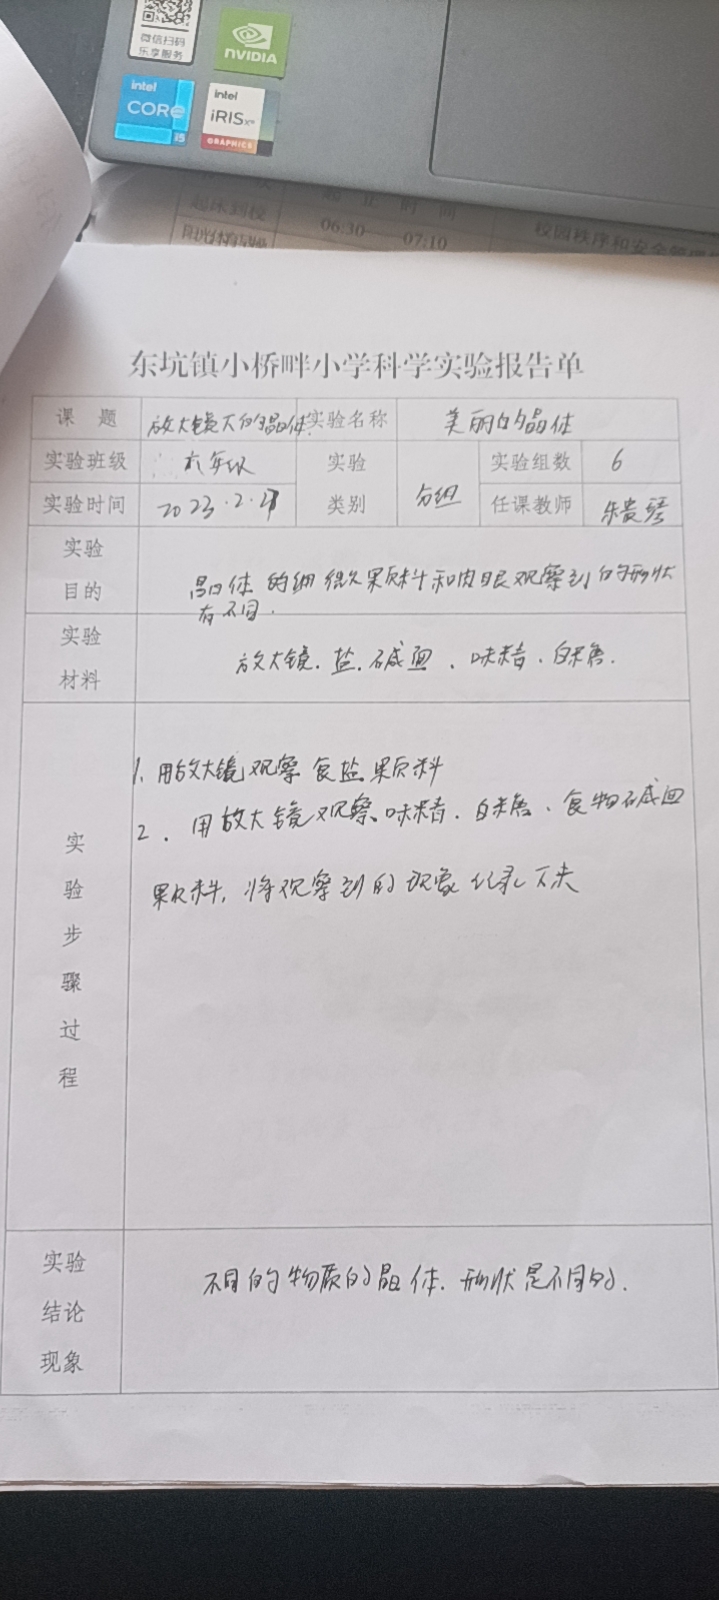 微信扫码
乐享服务
NVIDIA
intel
CORE
i5
intel
iRIS Xe
GRAPHICS
次 起 止 时 间
起床到校 06:30 07:10 校园秩序和安全管理
阳光体育晨炼
东坑镇小桥畔小学科学实验报告单
课 题 放大镜下的晶体 实验名称 美丽的晶体
实验班级 六年级 实验 实验组数 6
实验时间 2023.2.21 类别 分组 任课教师 朱贵琴
实验
目的
晶体的细微颗料和肉眼观察到的形状
有不同.
实验
材料
放大镜、盐、碱面、味精、白糖.
实
验
步
骤
过
程
1、用放大镜观察食盐颗料
2、用放大镜观察、味精、白糖、食物碱面
颗料，将观察到的现象纪录下来
实验
结论
现象
不同的物质的晶体.形状是不同的.